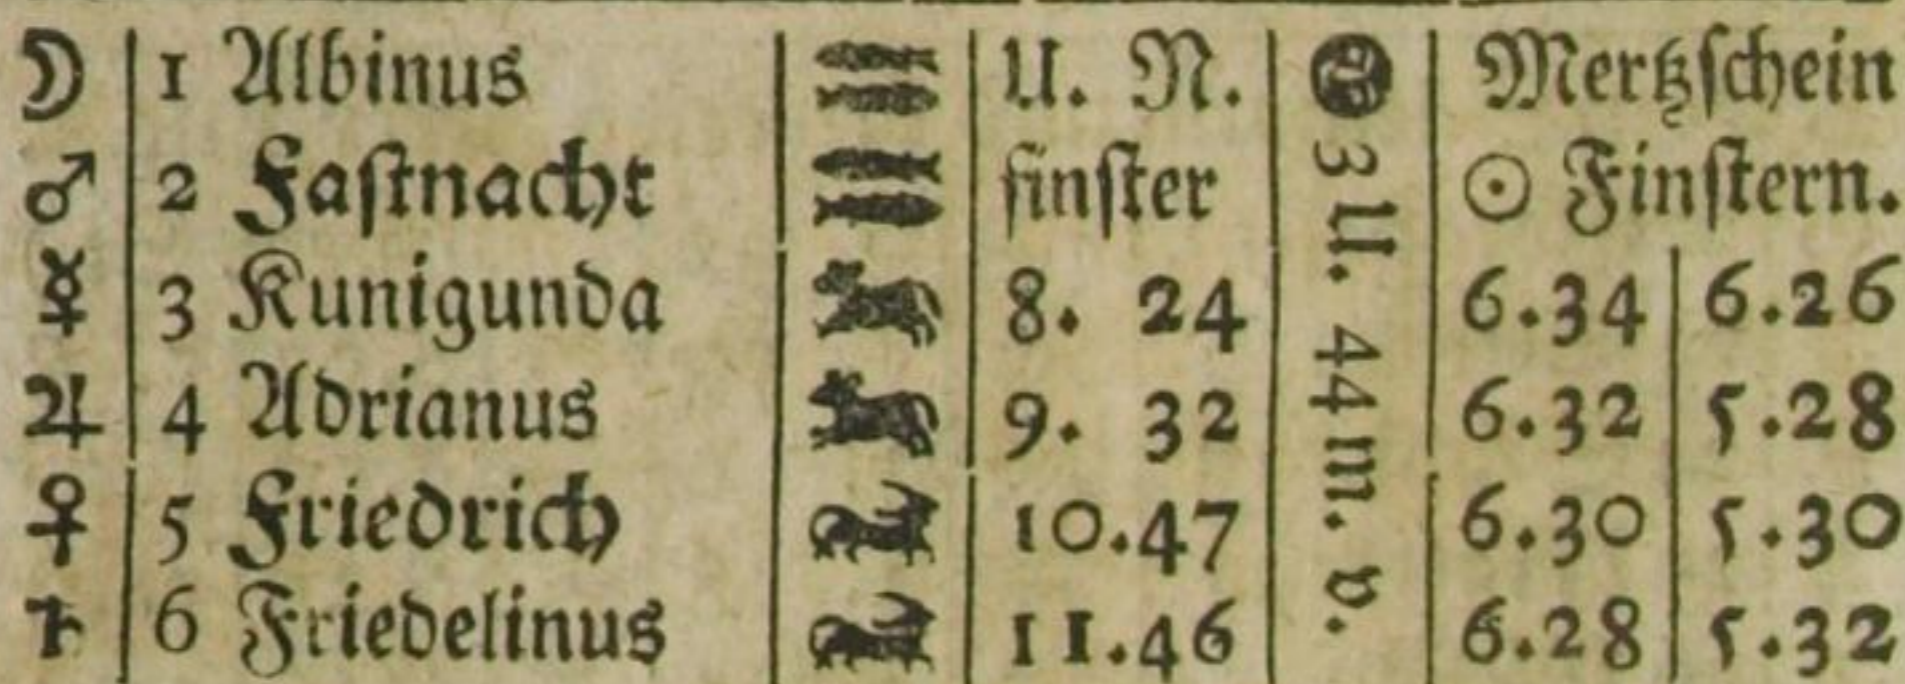 ☽ 1 Albinus U. N. Mertzſchein
♂ 2 Faſtnacht finſter ☉ Finſtern.
☿ 3 Kunigunda 8. 24 6.34 6.26
♃ 4 Adrianus 9. 32 6.32 5.28
♀ 5 Friedrich 10.47 6.30 5.30
♄ 6 Friedelinus 11.46 6.28 5.32
3 U. 44 m. v.